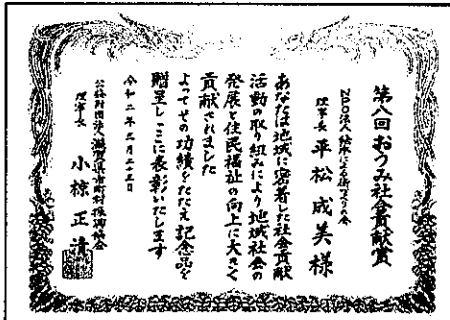 第八回 おうみ社会貢献賞
NPO法人 絵本による街づくりの会
理事長 平松成美 様
あなたは地域に密着した社会貢献
活動の取り組みにより地域社会の
発展と住民福祉の向上に大きく
貢献されました
よってその功績をたたえ記念品を
贈呈しここに表彰いたします
令和二年三月二十五日
公益財団法人 滋賀県市町村振興協会
理事長 小椋正清